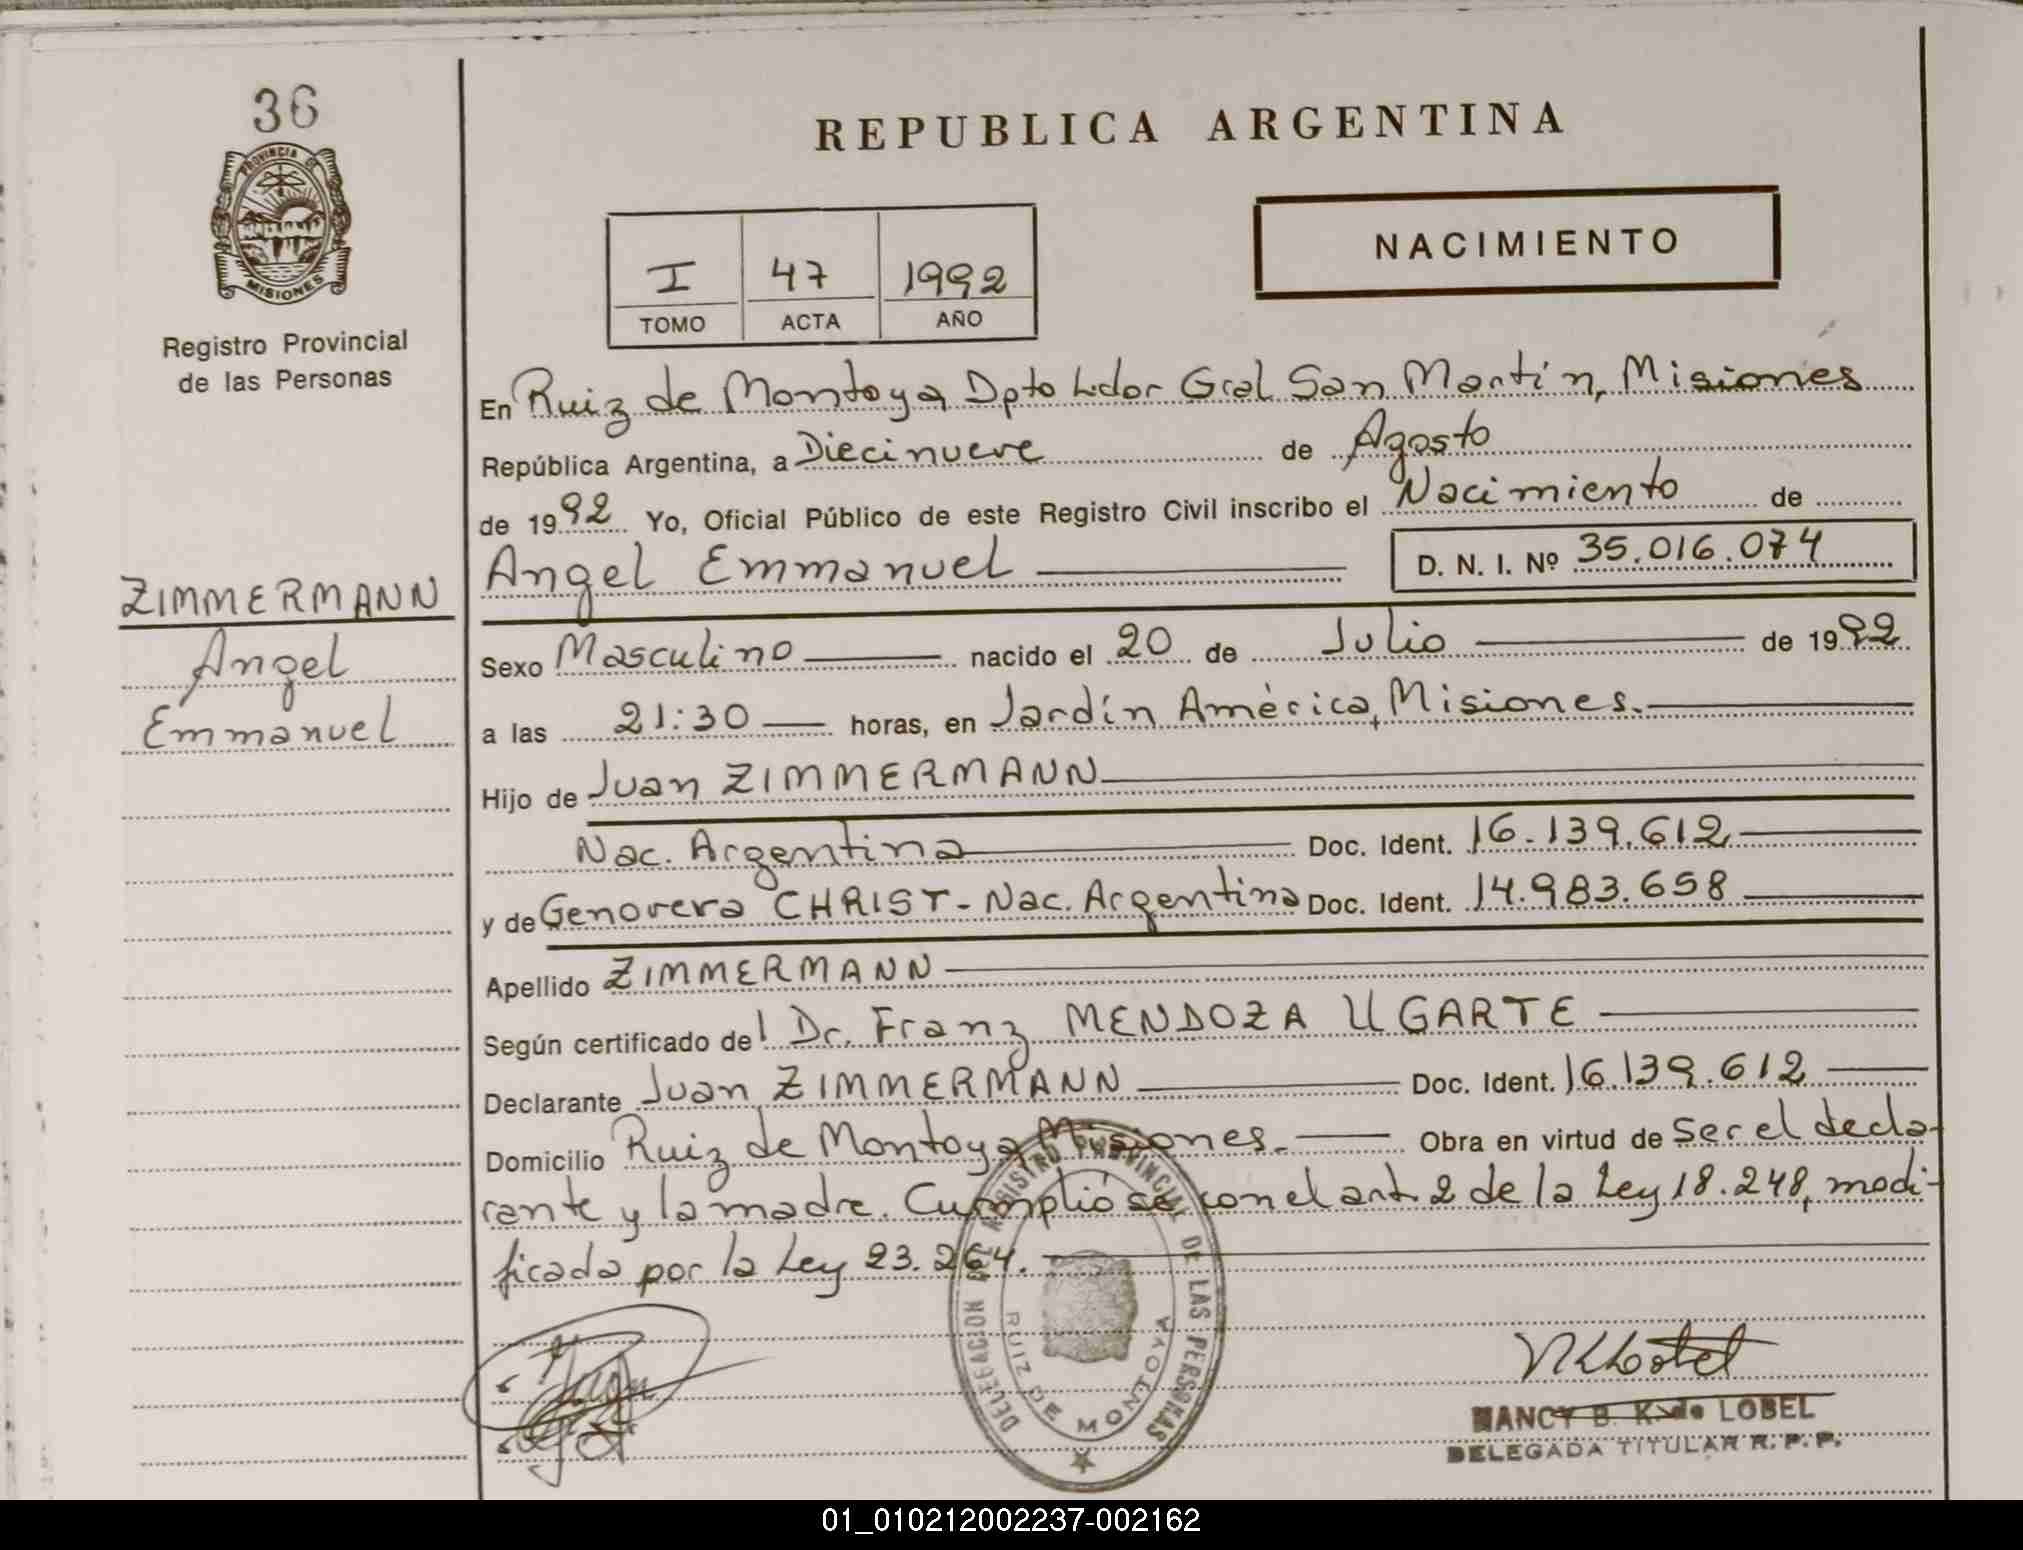 36
PROVINCIA DE
MISIONES
Registro Provincial
de las Personas
REPUBLICA ARGENTINA
NACIMIENTO
I 47 1992
TOMO ACTA AÑO
En Ruiz de Montoya, Dpto Ldor Gral San Martín, Misiones
República Argentina, a Diecinueve de Agosto
de 1992 Yo, Oficial Público de este Registro Civil inscribo el Nacimiento de
Angel Emmanuel D. N. I. Nº 35.016.074
ZIMMERMANN
Angel
Emmanuel
Sexo Masculino nacido el 20 de Julio de 1992
a las 21:30 horas, en Jardín América, Misiones.
Hijo de Juan ZIMMERMANN
Nac. Argentina Doc. Ident. 16.139.612
y de Genoveva CHRIST - Nac. Argentina Doc. Ident. 14.983.658
Apellido ZIMMERMANN
Según certificado del Dr. Franz MENDOZA UGARTE
Declarante Juan ZIMMERMANN Doc. Ident. 16.139.612
Domicilio Ruiz de Montoya Misiones. Obra en virtud de Ser el decla-
rante y la madre. Cumplióse con el art. 2 de la Ley 18.248, modi-
ficada por la Ley 23.264.
DELEGACION DEL REGISTRO PROVINCIAL DE LAS PERSONAS
RUIZ DE MONTOYA
NANCY B. K. de LOBEL
DELEGADA TITULAR R. P. P.
01_010212002237-002162